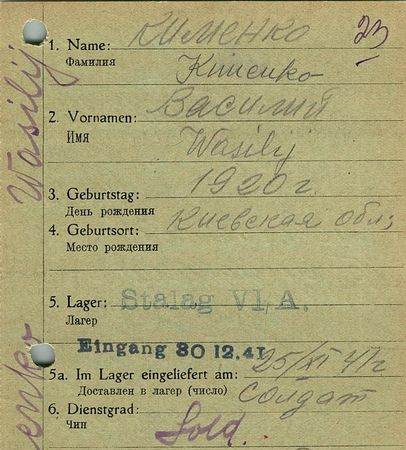 23
1. Name: КИМЕНКО
Фамилия
Kimenko
2. Vornamen: ВАСИЛИЙ
Имя
Wasilij
3. Geburtstag: 1920 г.
День рождения
4. Geburtsort: Киевская обл;
Место рождения
5. Lager: Stalag VI A.
Лагер
Eingang 30 12.41
5a. Im Lager eingeliefert am: 25/XI 41г
Доставлен в лагер (число)
6. Dienstgrad: Солдат
Чин
Sold.
Wasilij
enko